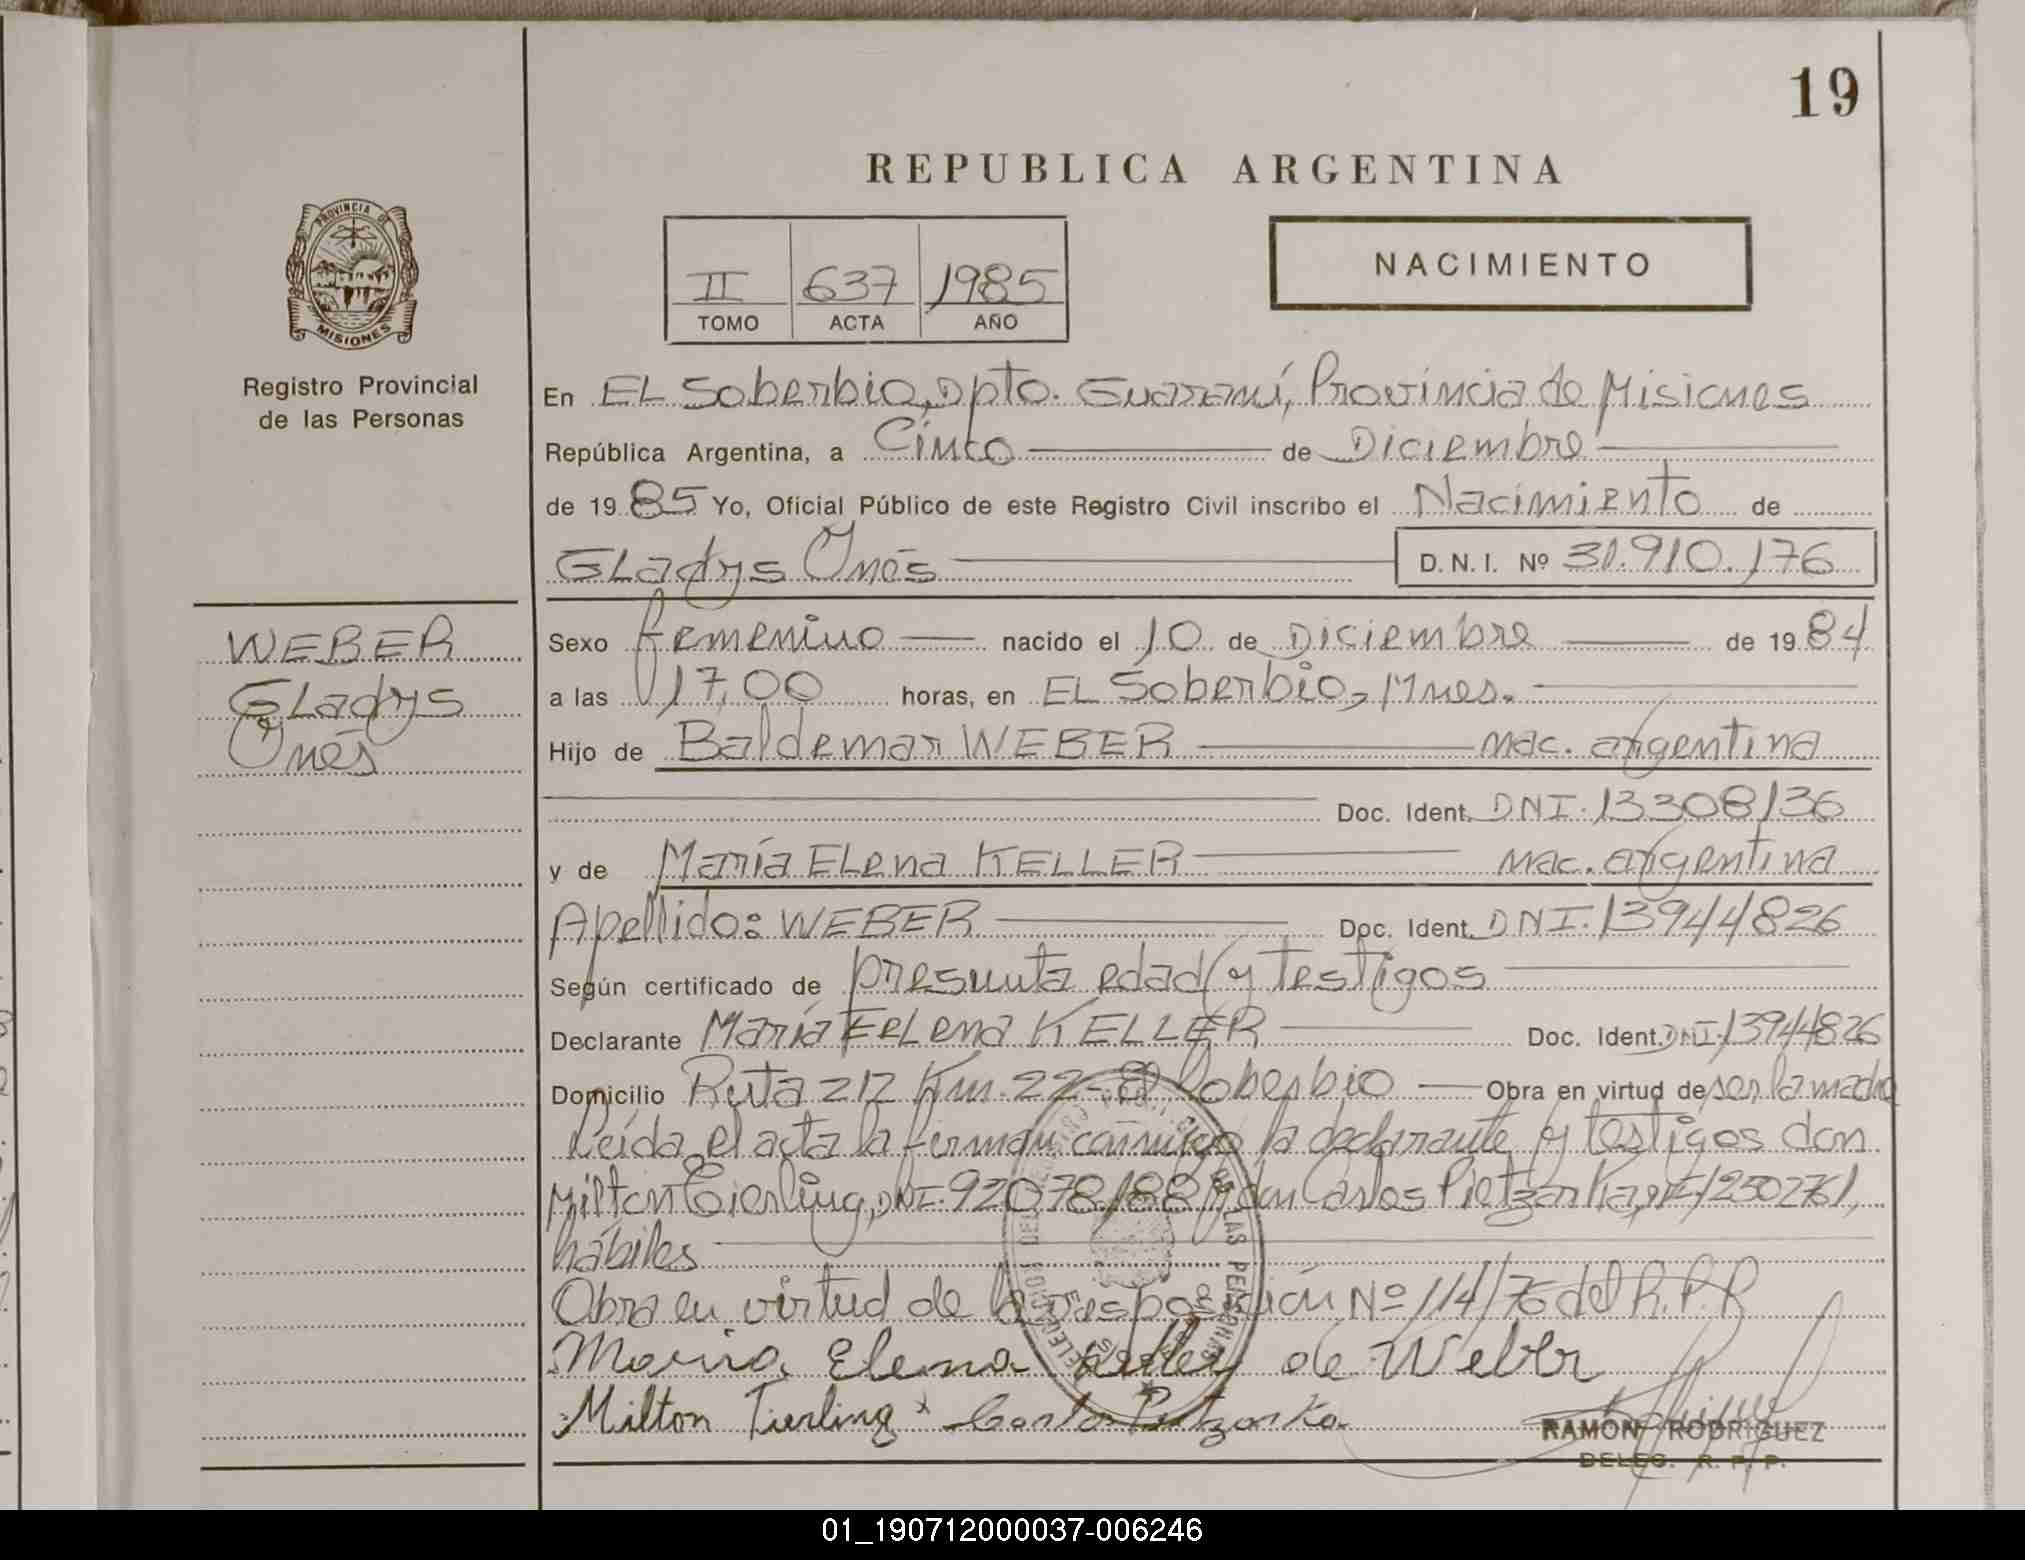 19
REPUBLICA ARGENTINA
PROVINCIA DE
MISIONES
Registro Provincial
de las Personas
II 637 1985
TOMO ACTA AÑO
NACIMIENTO
En EL Soberbio, Dpto. Guaraní, Provincia de Misiones
República Argentina, a Cinco de Diciembre
de 1985 Yo, Oficial Público de este Registro Civil inscribo el Nacimiento de
Gladys Inés D. N. I. Nº 31.910.176
WEBER
Gladys
Inés
Sexo femenino nacido el 10 de Diciembre de 1984
a las 17,00 horas, en EL Soberbio, Mnes.
Hijo de Baldemar WEBER nac. argentina
Doc. Ident. DNI. 13308136
y de María Elena KELLER nac. argentina
Apellido: WEBER Doc. Ident. DNI. 13944826
Según certificado de presunta edad y testigos
Declarante María Elena KELLER Doc. Ident. DNI. 13944826
Domicilio Ruta 212 Km. 22 - El Soberbio Obra en virtud de ser la madre
Leída el acta la firman conmigo la declarante y testigos don
Milton Tierling, DNI. 92078188 y don Carlos Pietzarka, 1250276
hábiles
Obra en virtud de la Disposición Nº 114/76 del R.P.P
Maria Elena Keller de Weber
Milton Tierling Carlos Pietzarka
RAMON RODRIGUEZ
DELEG. R. P. P.
01_190712000037-006246